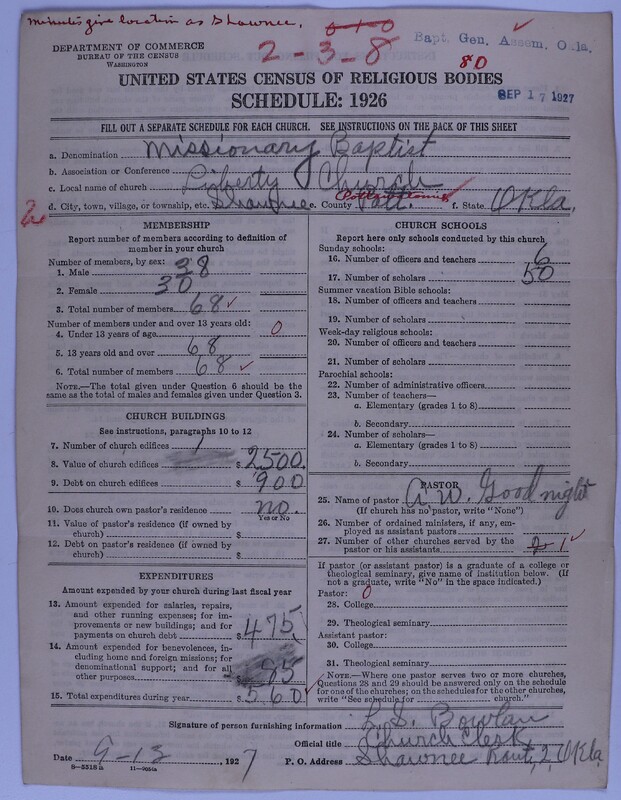 minutes give location as Shawnee.
Bapt. Gen. Assem. Okla.
2-3-8
80
DEPARTMENT OF COMMERCE
BUREAU OF THE CENSUS
WASHINGTON
SEP 17 1927
UNITED STATES CENSUS OF RELIGIOUS BODIES
SCHEDULE: 1926
FILL OUT A SEPARATE SCHEDULE FOR EACH CHURCH. SEE INSTRUCTIONS ON THE BACK OF THIS SHEET
a. Denomination Missionary Baptist
b. Association or Conference
c. Local name of church Liberty Church
d. City, town, village, or township, etc. Shawnee e. County Pott. Pottawatomie f. State Okla.
2
MEMBERSHIP
Report number of members according to definition of
member in your church
Number of members, by sex:
1. Male 38
2. Female 30
3. Total number of members 68
Number of members under and over 13 years old:
4. Under 13 years of age 0
5. 13 years old and over 68
6. Total number of members 68
NOTE.—The total given under Question 6 should be
the same as the total of males and females given under Question 3.
CHURCH BUILDINGS
See instructions, paragraphs 10 to 12
7. Number of church edifices 1
8. Value of church edifices $ 2500.
9. Debt on church edifices $ 900
10. Does church own pastor's residence? no.
Yes or No
11. Value of pastor's residence (if owned by
church) $
12. Debt on pastor's residence (if owned by
church) $
EXPENDITURES
Amount expended by your church during last fiscal year
13. Amount expended for salaries, repairs,
and other running expenses; for im-
provements or new buildings; and for
payments on church debt $ 475
14. Amount expended for benevolences, in-
cluding home and foreign missions; for
denominational support; and for all
other purposes 85
15. Total expenditures during year $ 560
CHURCH SCHOOLS
Report here only schools conducted by this church
Sunday schools:
16. Number of officers and teachers 6
17. Number of scholars 50
Summer vacation Bible schools:
18. Number of officers and teachers
19. Number of scholars
Week-day religious schools:
20. Number of officers and teachers
21. Number of scholars
Parochial schools:
22. Number of administrative officers
23. Number of teachers—
a. Elementary (grades 1 to 8)
b. Secondary
24. Number of scholars—
a. Elementary (grades 1 to 8)
b. Secondary
PASTOR
25. Name of pastor A. W. Goodnight
(If church has no pastor, write "None")
26. Number of ordained ministers, if any, em-
ployed as assistant pastors
27. Number of other churches served by the
pastor or his assistants 2 1
If pastor (or assistant pastor) is a graduate of a college or
theological seminary, give name of institution below. (If
not a graduate, write "No" in the space indicated.)
Pastor: 0
28. College
29. Theological seminary
Assistant pastor:
30. College
31. Theological seminary
NOTE.—Where one pastor serves two or more churches,
Questions 28 and 29 should be answered only on the schedule
for one of the churches; on the schedules for the other churches,
write "See schedule for church."
Signature of person furnishing information L. S. Bowlan
Official title Church Clerk
Date 9-13, 1927 P. O. Address Shawnee Rout, 2, Okla
8-5518 a 11-9054a